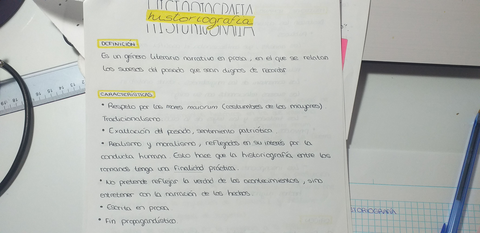 HISTORIOGRAFIA
historiografica
HISTORIOGRAFIA
DEFINICIÓN
Es un género literario narrativo en prosa, en el que se relatan
los sucesos del pasado que sean dignos de recordar
CARACTERÍSTICAS
* Respeto por las mores maiorum (costumbres de los mayores)
Tradicionalismo
* Exaltación del pasado, sentimiento patriótico
* Realismo y moralismo, reflejados en su interés por la
conducta humana. Esto hace que la historiografía entre los
romanos tenga una finalidad práctica.
* No pretende reflejar la verdad de los acontecimientos, sino
entretener con la narración de los hechos.
* Escrita en prosa
* Fin propagandístico